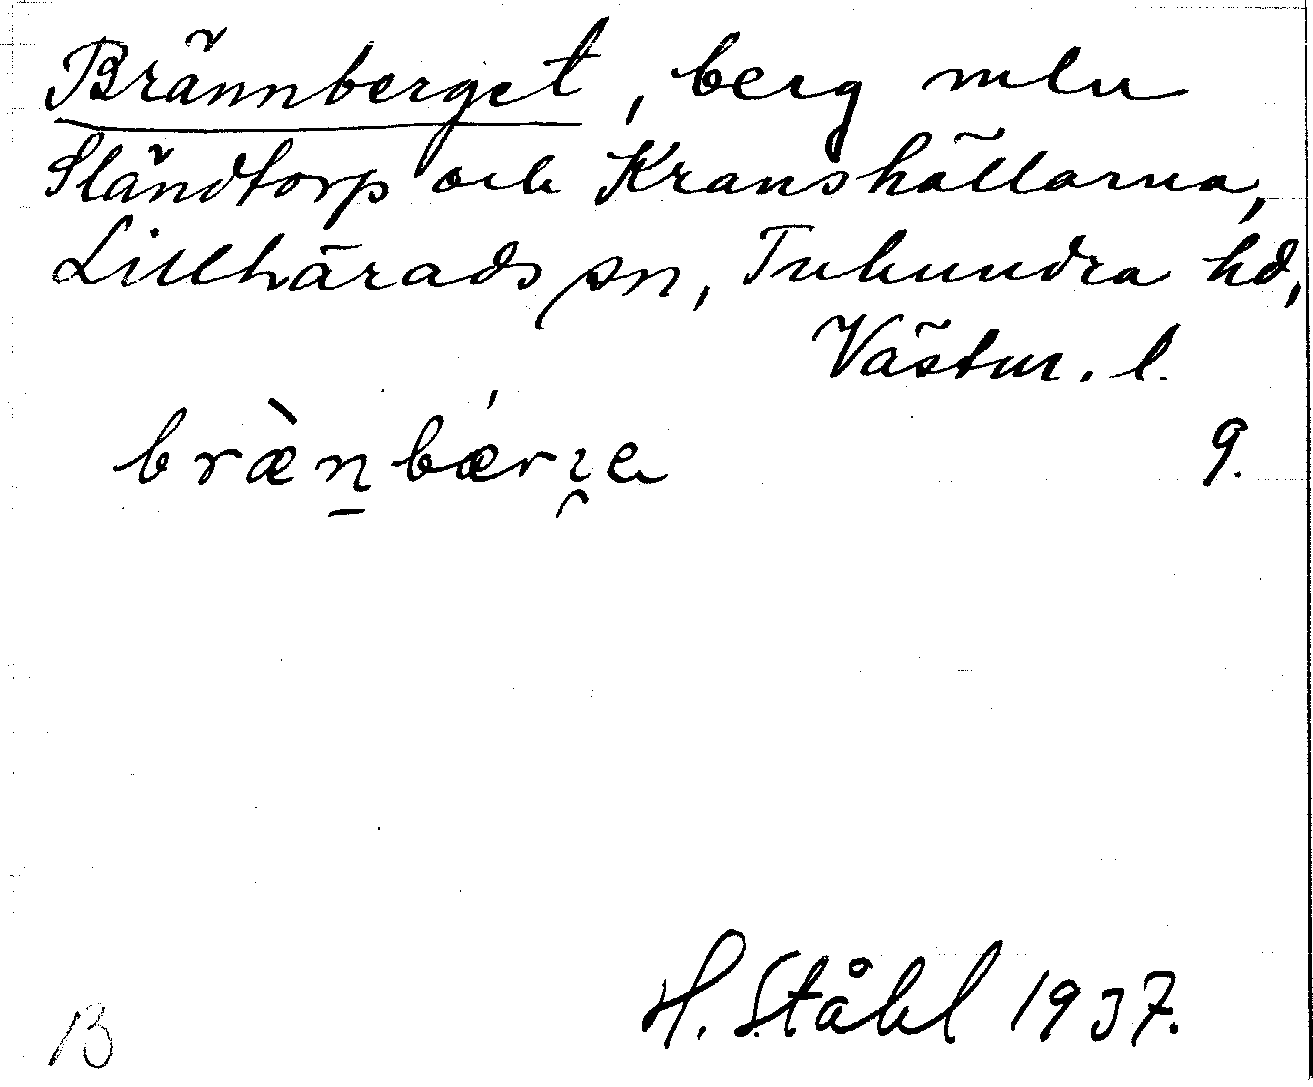 Brännberget, berg mln
Sländtorp och Kranshällarna,
Lillhärads sn, Tuhundra hd,
Västm. l.
9.
H. Ståhl 1937.
B